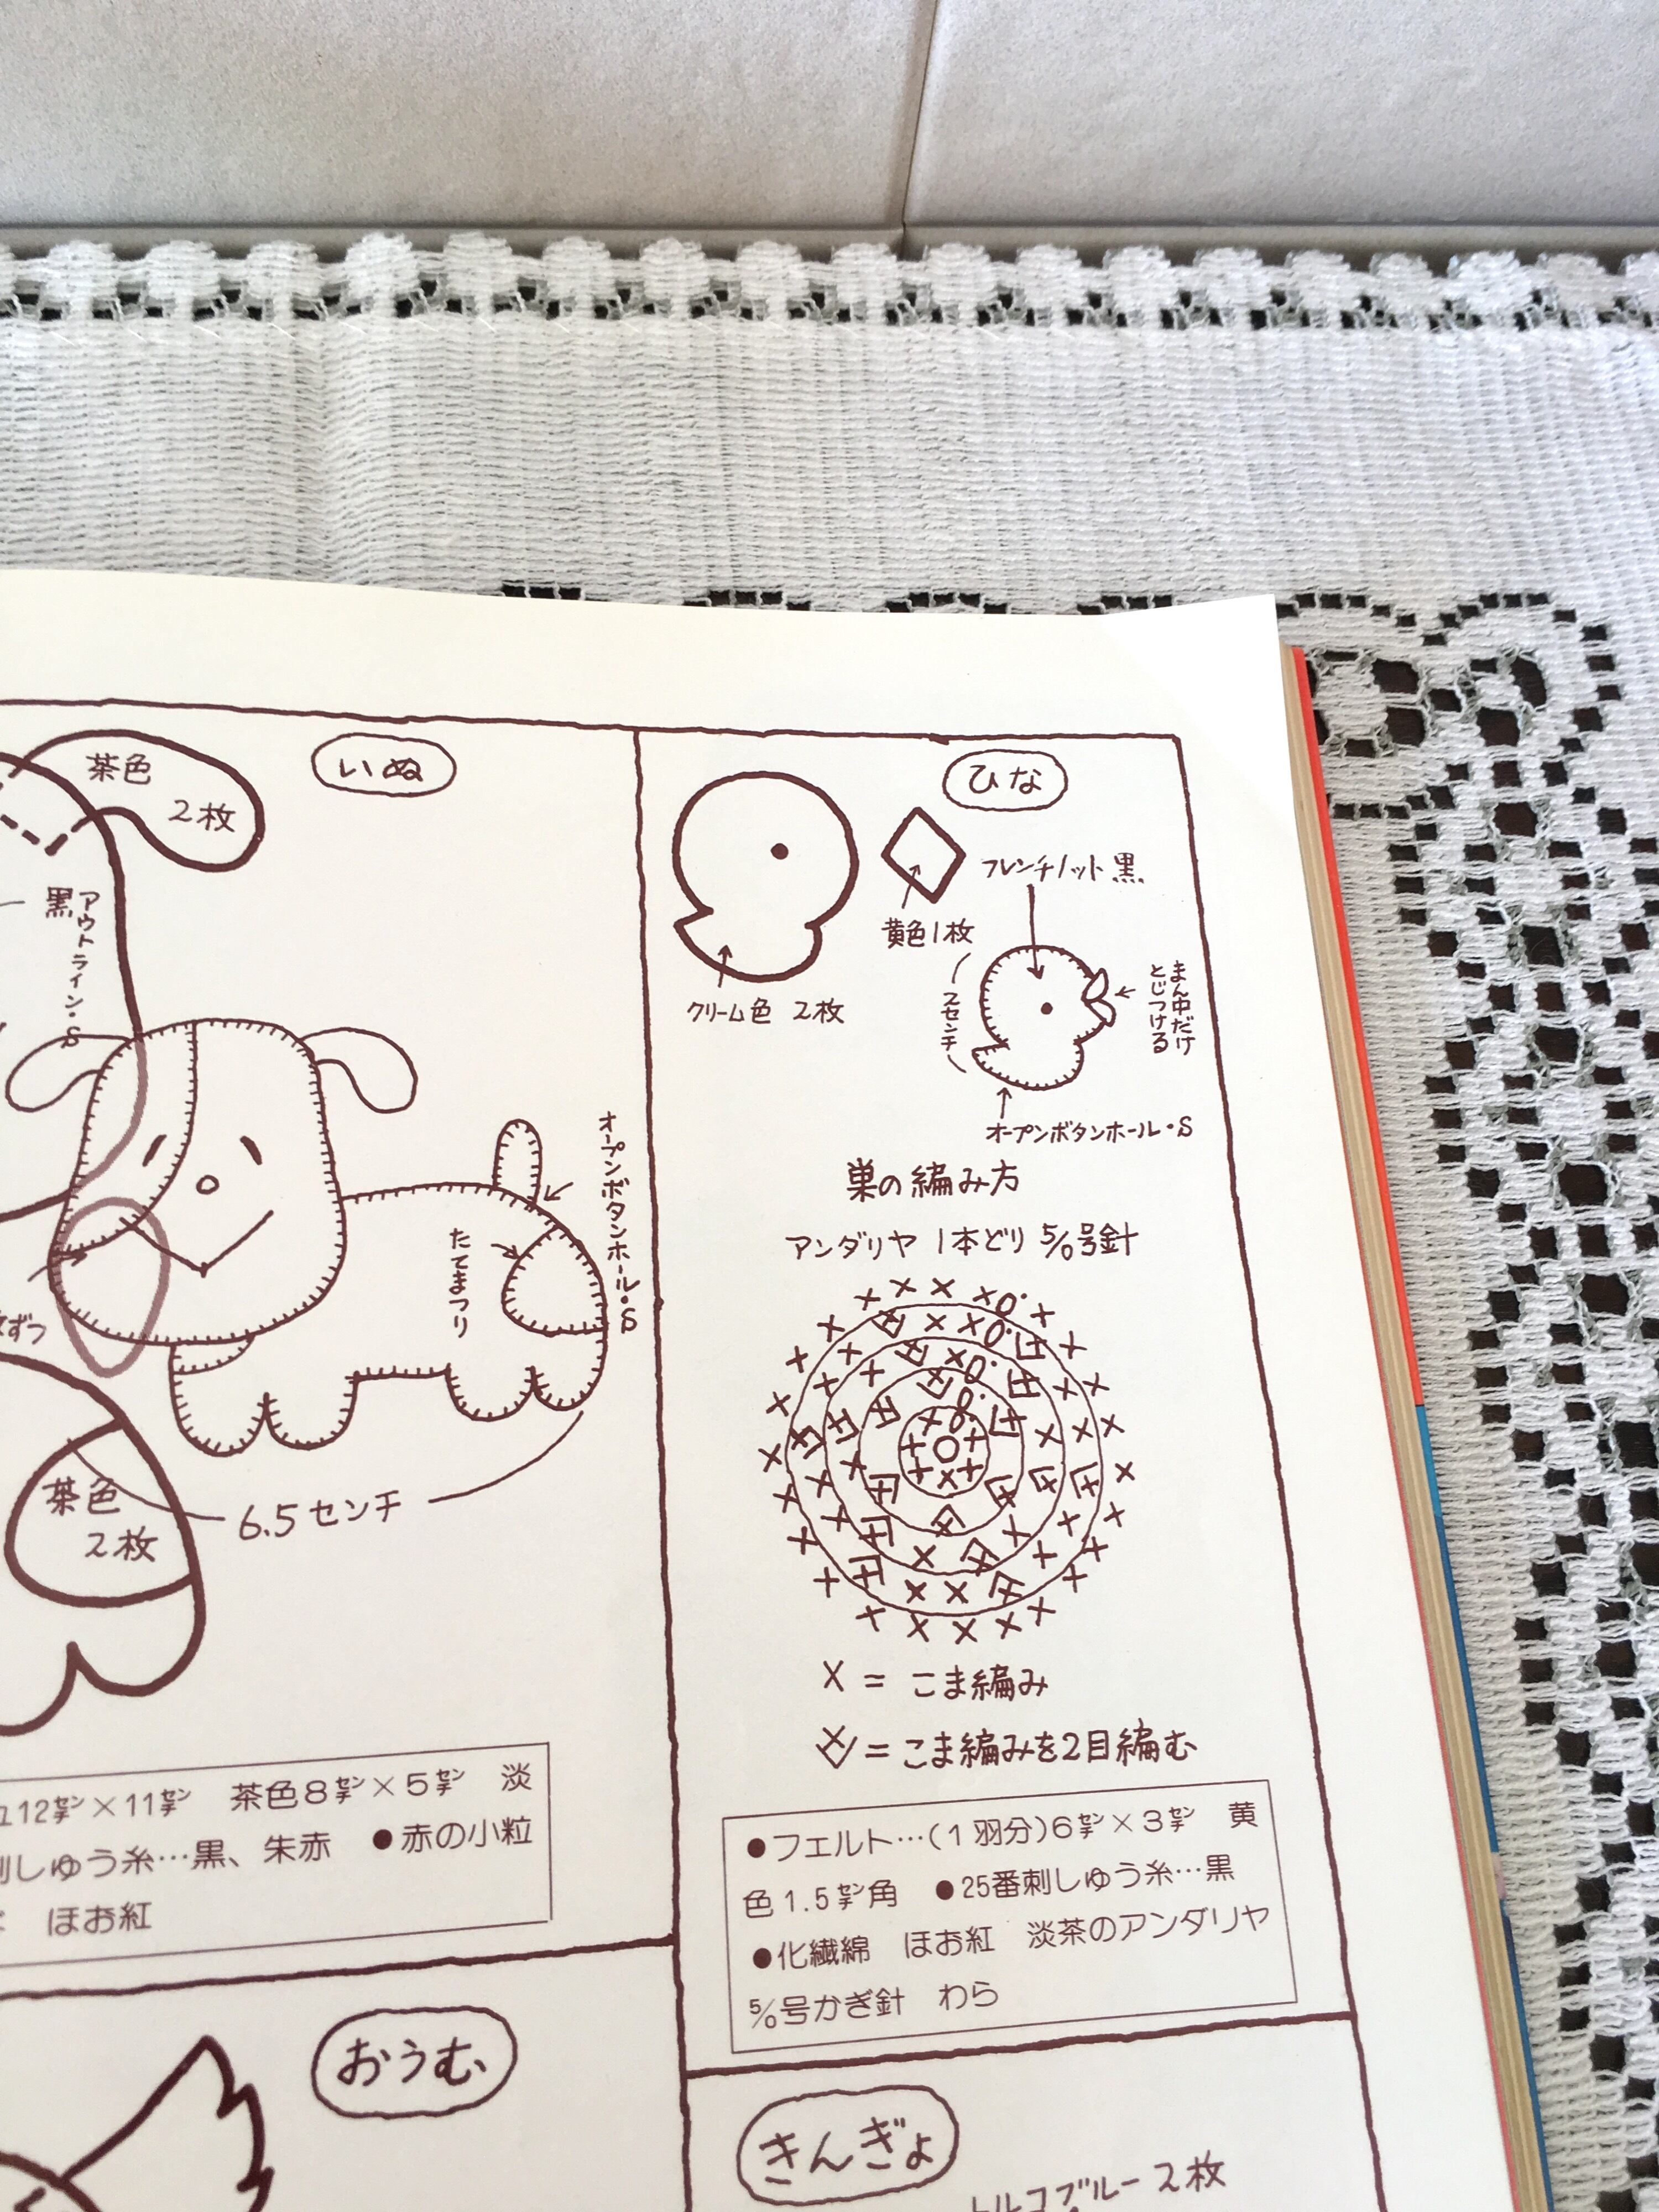 いぬ
茶色
2枚
黒
アウトライン・S
オープンボタンホール・S
たてまつり
ずつ
6.5センチ
茶色
2枚
12センチ×11センチ 茶色8センチ×5センチ 淡
刺しゅう糸…黒、朱赤 ●赤の小粒
ほお紅
ひな
フレンチノット 黒
黄色1枚
クリーム色 2枚
2センチ
まん中だけ
とじつける
オープンボタンホール・S
巣の編み方
アンダリヤ 1本どり 5/0号針
X = こま編み
= こま編みを2目編む
●フェルト…(1羽分)6センチ×3センチ 黄
色1.5センチ角 ●25番刺しゅう糸…黒
●化繊綿 ほお紅 淡茶のアンダリヤ
5/0号かぎ針 わら
おうむ
きんぎょ
トルコブルー 2枚